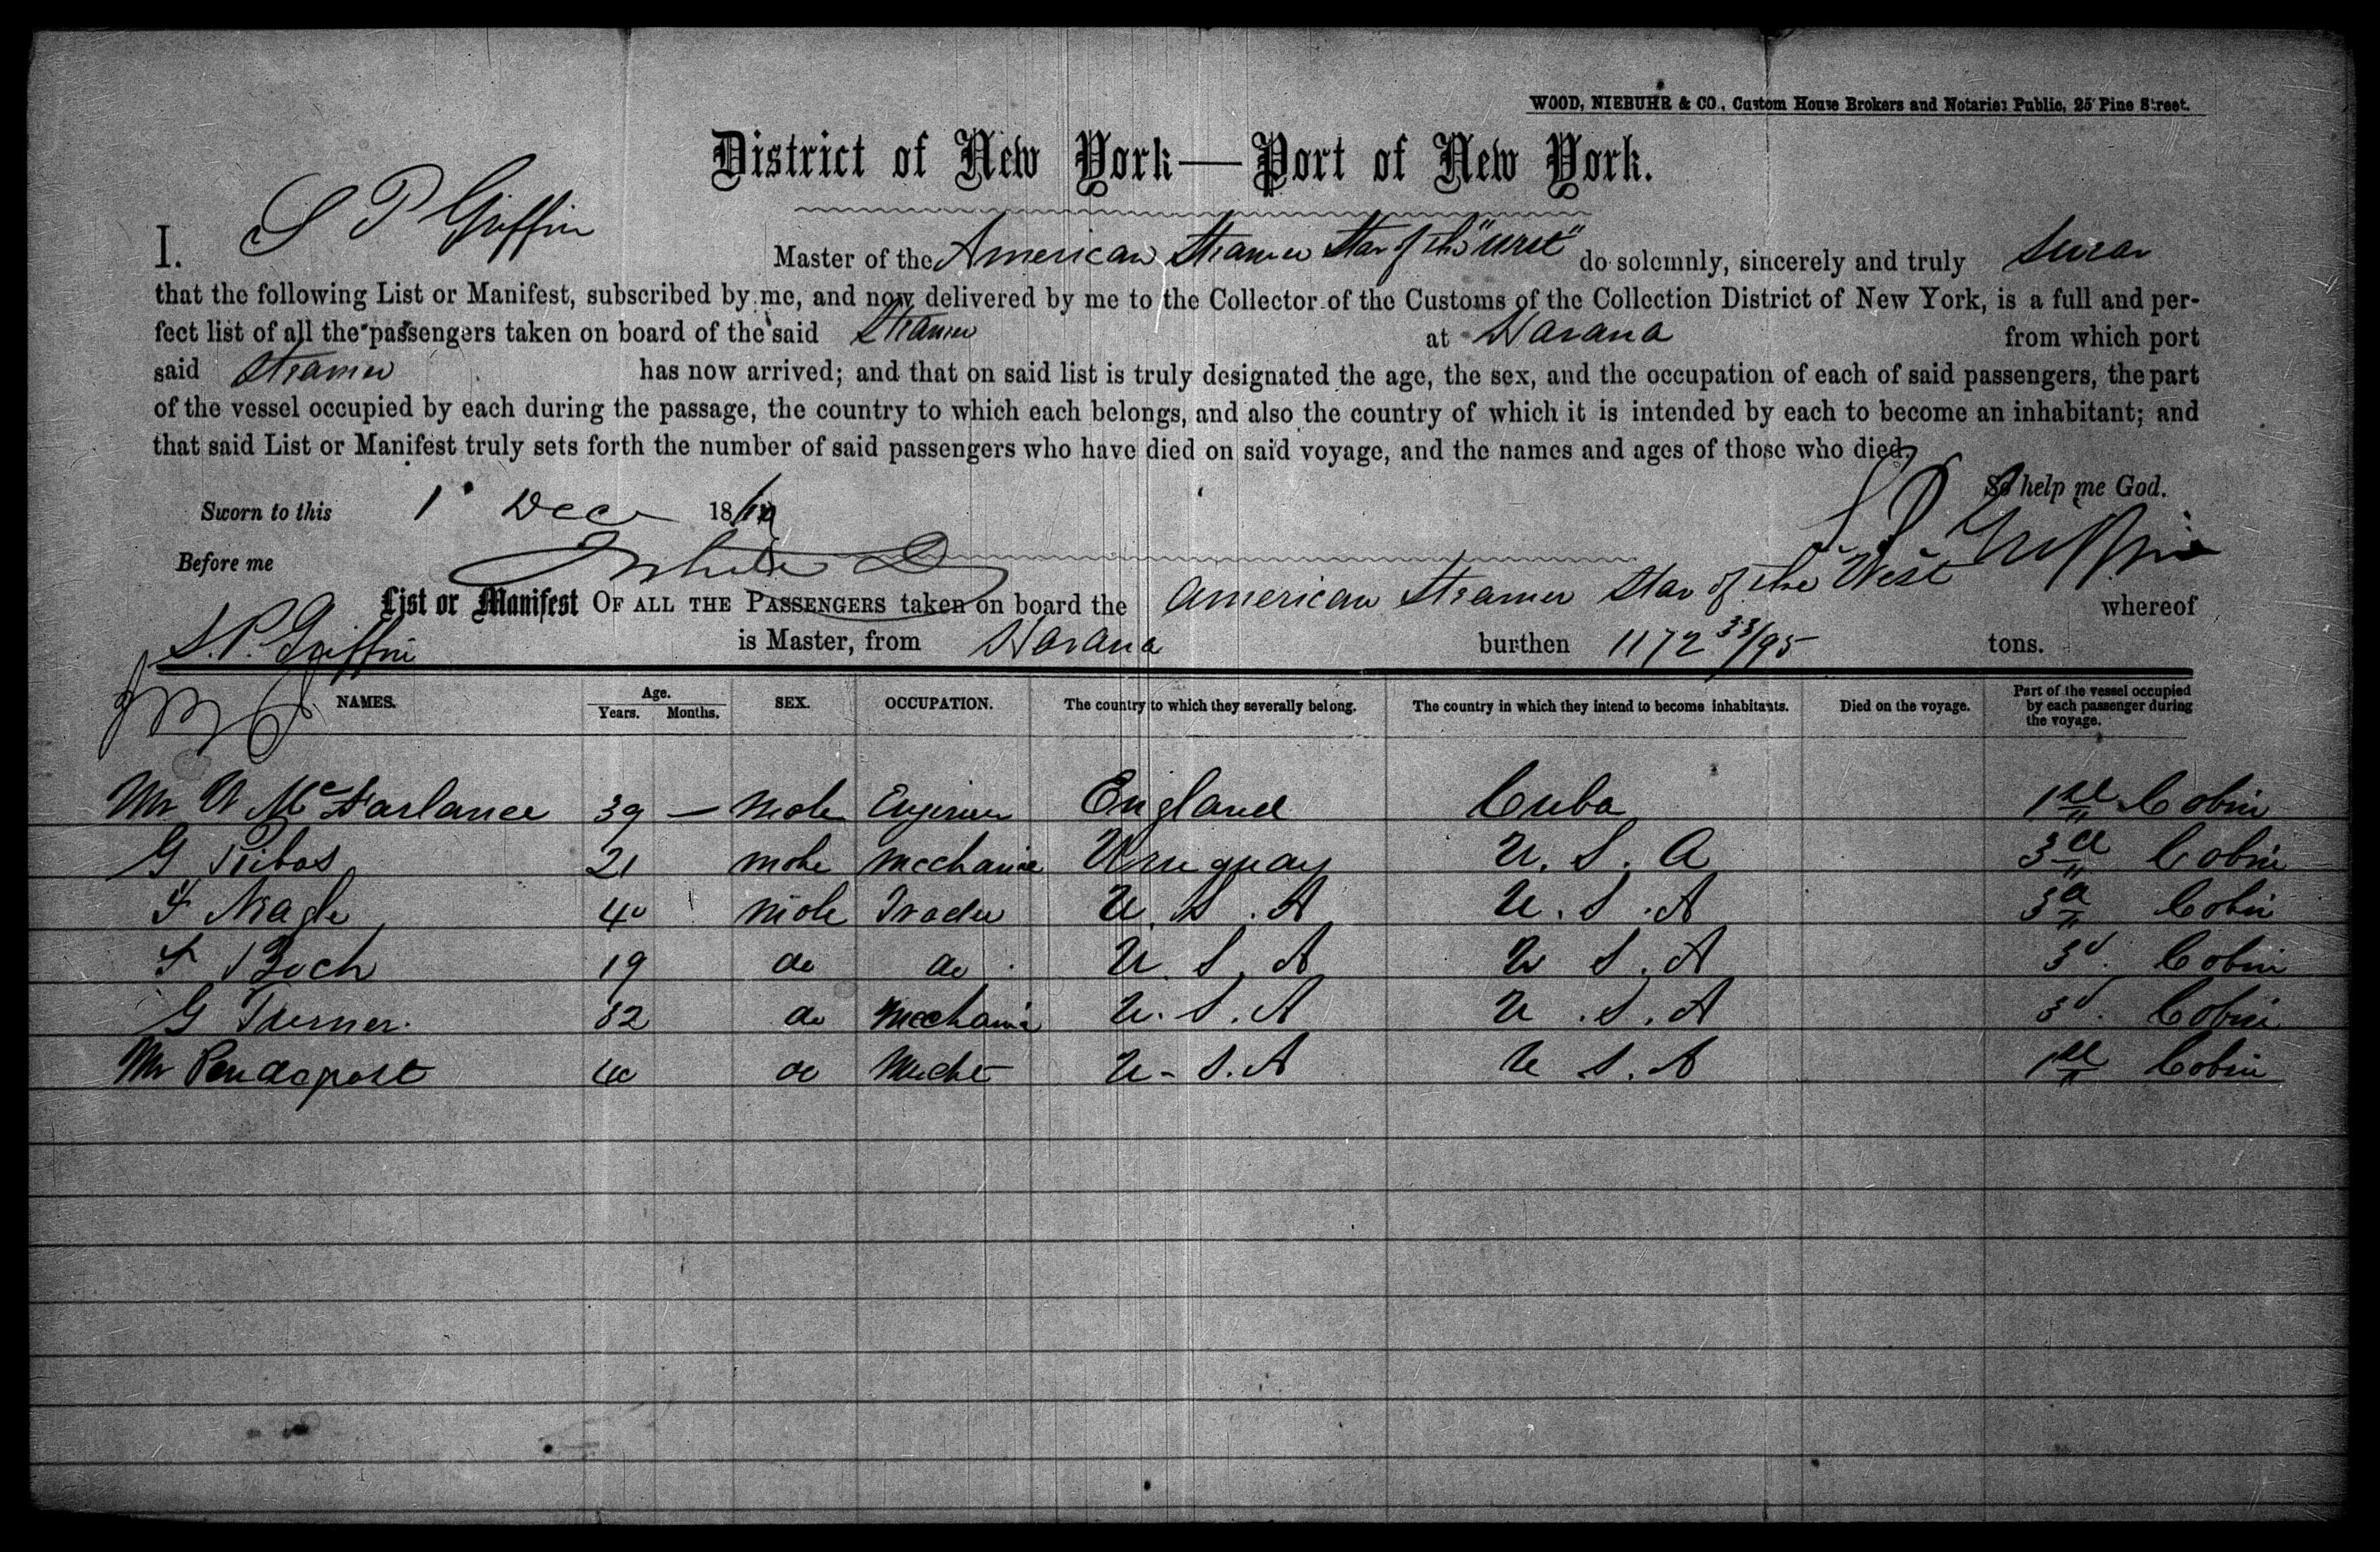 WOOD, NIEBUHR & CO., Custom House Brokers and Notaries Public, 25 Pine Street.
District of New York—Port of New York.
I. S P Griffin Master of the American Steamer Star of the "West" do solemnly, sincerely and truly swear
that the following List or Manifest, subscribed by me, and now delivered by me to the Collector of the Customs of the Collection District of New York, is a full and per-
fect list of all the passengers taken on board of the said Steamer at Havana from which port
said Steamer has now arrived; and that on said list is truly designated the age, the sex, and the occupation of each of said passengers, the part
of the vessel occupied by each during the passage, the country to which each belongs, and also the country of which it is intended by each to become an inhabitant; and
that said List or Manifest truly sets forth the number of said passengers who have died on said voyage, and the names and ages of those who died.
So help me God.
Sworn to this 1 Dec 18 S P Griffin
Before me
List or Manifest OF ALL THE PASSENGERS taken on board the American Steamer Star of the West whereof
S. P. Griffin is Master, from Havana burthen 1172 33/95 tons.
NAMES. Age. Years. Months. SEX. OCCUPATION. The country to which they severally belong. The country in which they intend to become inhabitants. Died on the voyage. Part of the vessel occupied by each passenger during the voyage.
Mr Mc Farlance 39 — Male Engineer England Cuba 1st Cabin
G Ribas 21 male mechanic Uruguay U. S. A 3d Cabin
F Nagle 40 male Trader U. S. A U. S. A 3d Cabin
F Boch 19 do do U. S. A U S. A 3d. Cabin
G Turner. 32 do Mechanic U. S. A U. S. A 3d. Cabin
Mr Pendapost 40 do Mecht U. S. A U S. A 1st Cabin